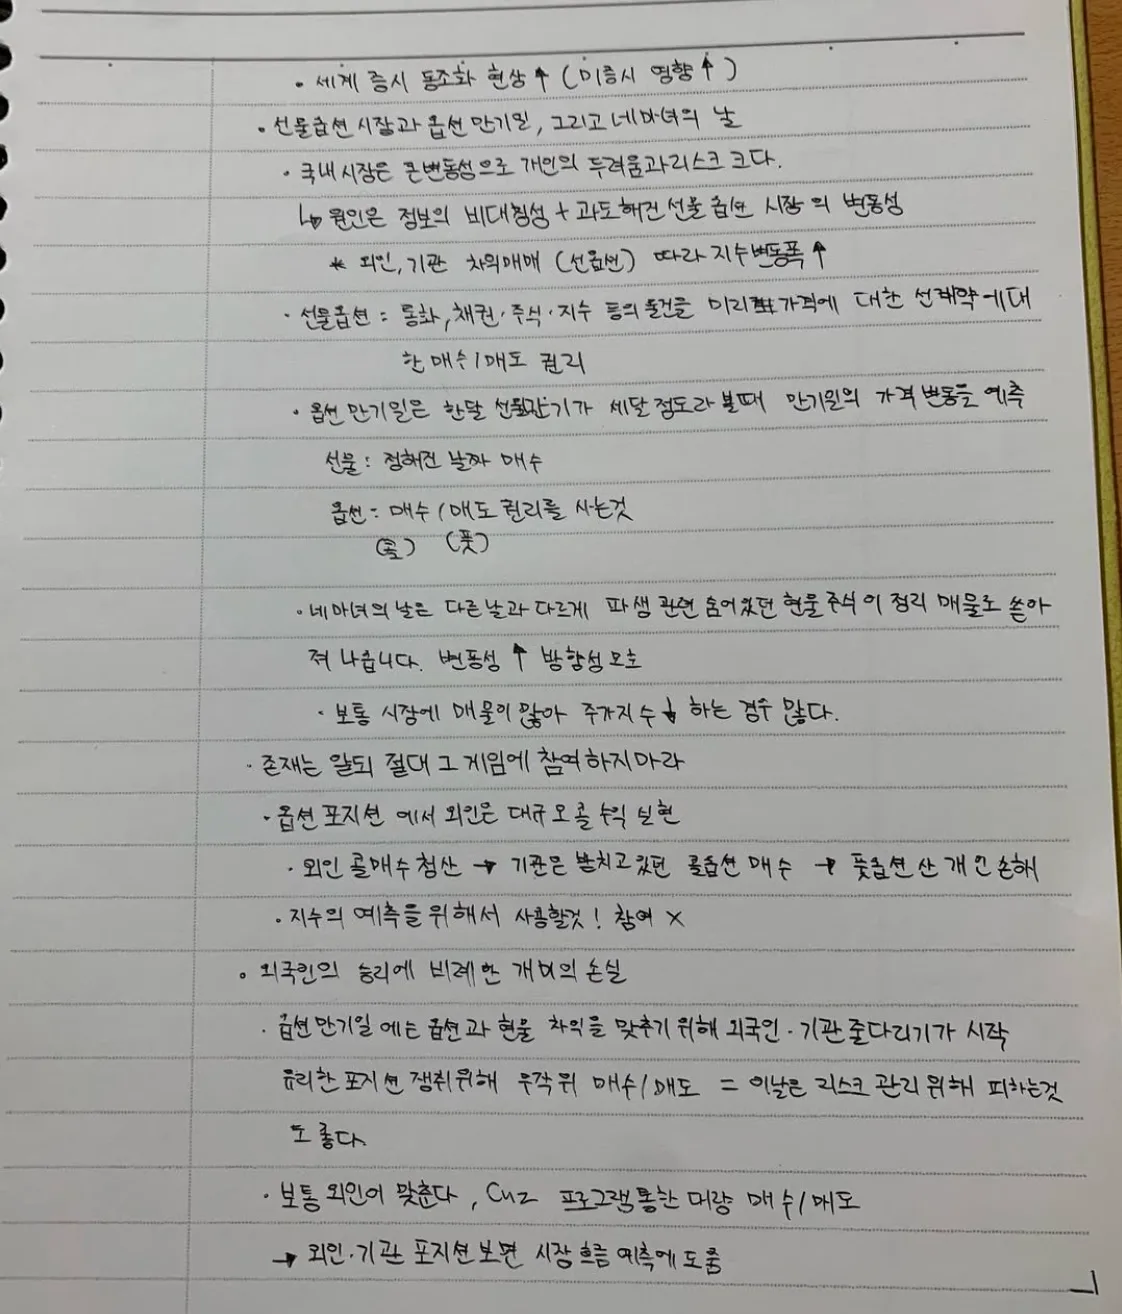 · 세계 증시 동조화 현상↑ (미증시 영향↑)
· 선물옵션 시장과 옵션 만기일, 그리고 네마녀의 날
· 국내시장은 큰변동성으로 개인의 두려움과 리스크 크다.
↳ 원인은 정보의 비대칭성 + 과도해진 선물옵션 시장의 변동성
* 외인, 기관 차익매매 (선옵션) 따라 지수변동폭↑
· 선물옵션 : 통화, 채권·주식·지수 등의 물건을 미리 가격에 대한 선계약에 대
한 매수/매도 권리
· 옵션 만기일은 한달 선물만기가 세달 정도라 볼때 만기일의 가격변동을 예측
선물 : 정해진 날짜 매수
옵션 : 매수/매도 권리를 사는것
(콜) (풋)
· 네마녀의 날은 다른날과 다르게 파생 관련 숨어있던 현물 주식이 정리 매물로 쏟아
져 나옵니다. 변동성↑ 방향성모호
· 보통 시장에 매물이 많아 주가지수↓ 하는 경우 많다.
· 존재는 알되 절대 그 게임에 참여하지마라
· 옵션 포지션에서 외인은 대규모 콜 수익 실현
· 외인 콜매수 청산 → 기관은 받치고 있던 콜옵션 매수 → 풋옵션 산 개인 손해
· 지수의 예측을 위해서 사용할것! 참여 X
∘ 외국인의 승리에 비례한 개미의 손실
· 옵션만기일에는 옵션과 현물 차익을 맞추기 위해 외국인·기관 줄다리기가 시작
유리한 포지션 쟁취위해 무작위 매수/매도 = 이날은 리스크 관리 위해 피하는것
도 좋다.
· 보통 외인이 맞춘다, Cuz 프로그램통한 대량 매수/매도
→ 외인·기관 포지션보면 시장 흐름 예측에 도움